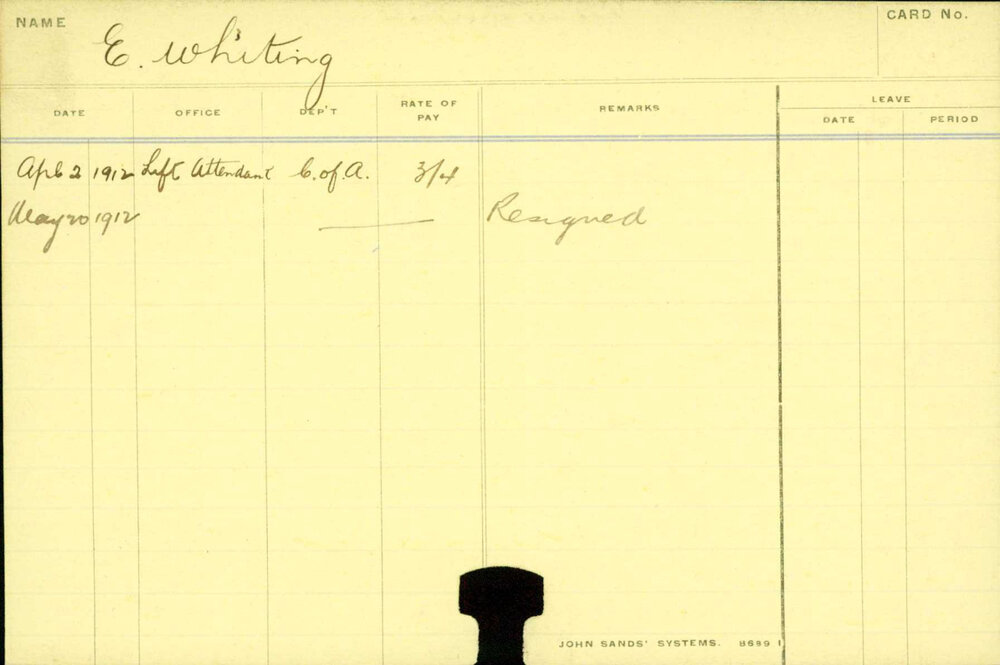 NAME
E. Whiting
CARD No.
DATE OFFICE DEP'T RATE OF PAY REMARKS LEAVE
DATE PERIOD
Apl 2 1912 Lift Attendant C. of A. 3/4
May 20 1912 — Resigned
JOHN SANDS' SYSTEMS. 8689 1